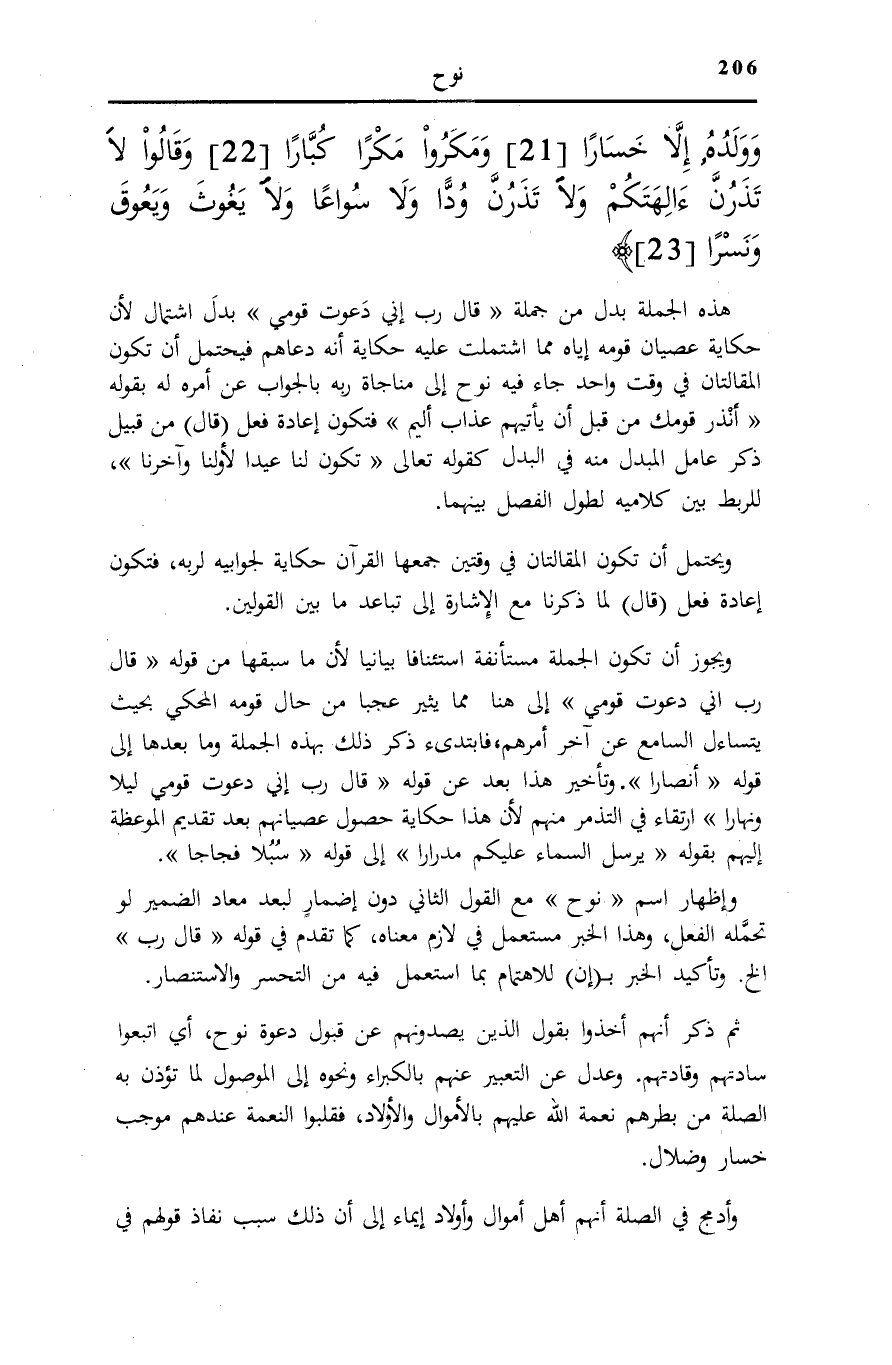 206
نوح
وَوَلَدُهُۥ إِلَّا خَسَارًا [21] وَمَكَرُواْ مَكْرًا كُبَّارًا [22] وَقَالُواْ لاَ
تَذَرُنَّ ءَالِهَتَكُمْ وَلاَ تَذَرُنَّ وُدًّا وَلَا سُواعًا وَلاَ يَغُوثَ وَيَعُوقَ
وَنَسْرًا [23]﴾
هذه الجملة بدل من جملة « قال رب إني دَعوت قومي » بدلَ اشتمال لأن
حكاية عصيان قومه إياه مما اشتملت عليه حكاية أنه دعاهم فيحتمل أن تكون
المقالتان في وقت واحد جاء فيه نوح إلى مناجاة ربه بالجواب عن أمره له بقوله
« أنْذر قومك من قبل أن يأتيهم عذاب أليم » فتكون إعادة فعل (قال) من قبيل
ذكر عامل المبدل منه في البدل كقوله تعالى « تكون لنا عيدا لأولنا وآخرنا »،
للربط بين كلاميه لطول الفصل بينهما.
ويحتمل أن تكون المقالتان في وقتين جمعها القرآن حكاية لجوابيه لربه، فتكون
إعادة فعل (قال) لما ذكرنا مع الإِشارة إلى تباعد ما بين القولين.
ويجوز أن تكون الجملة مستأنفة استئنافا بيانيا لأن ما سبقها من قوله « قال
رب اني دعوت قومي » إلى هنا مما يثير عجبا من حال قومه المحكي بحيث
يتساءل السامع عن آخر أمرهم،فابتدىء ذكر ذلك بهذه الجملة وما بعدها إلى
قوله « أنصارا ».وتأخير هذا بعد عن قوله « قال رب إني دعوت قومي ليلا
ونهارا » ارتقاء في التذمر منهم لأن هذا حكاية حصول عصيانهم بعد تقديم الموعظة
إليهم بقوله « يرسل السماء عليكم مدرارا » إلى قوله « سُبُلا فجاجا ».
وإظهار اسم « نوح » مع القول الثاني دون إضمارٍ لبعد معاد الضمير لو
تحمَّله الفعل، وهذا الخبر مستعمل في لازم معناه، كما تقدم في قوله « قال رب »
الخ. وتأكيد الخبر بـ(إن) للاهتمام بما استعمل فيه من التحسر والاستنصار.
ثم ذكر أنهم أخذوا بقول الذين يصدونهم عن قبول دعوة نوح، أي اتبعوا
سادتهم وقادتهم. وعدل عن التعبير عنهم بالكبراء ونحوه إلى الموصول لما تؤذن به
الصلة من بطرهم نعمة الله عليهم بالأموال والأولاد، فقلبوا النعمة عندهم موجب
خسار وضلال.
وأدمج في الصلة أنهم أهل أموال وأولاد إيماء إلى أن ذلك سبب نفاذ قولهم في